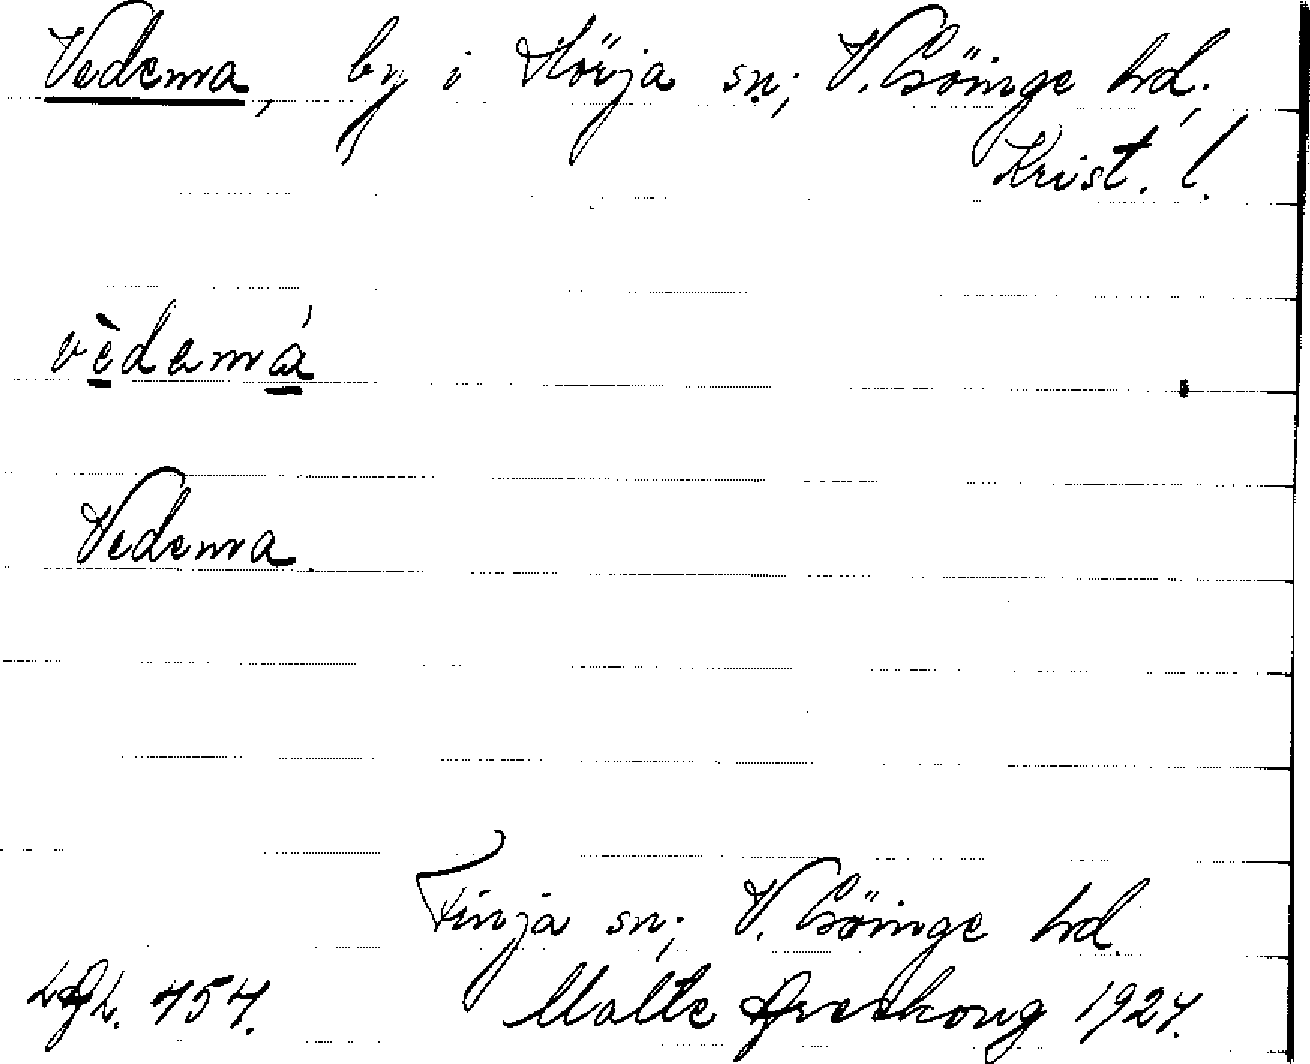 Vedema, by i Hörja sn; V. Göinge hd.
Krist. l.
vèdəmá
Vedema.
Finja sn; V. Göinge hd.
454. Malte Areskoug 1924.